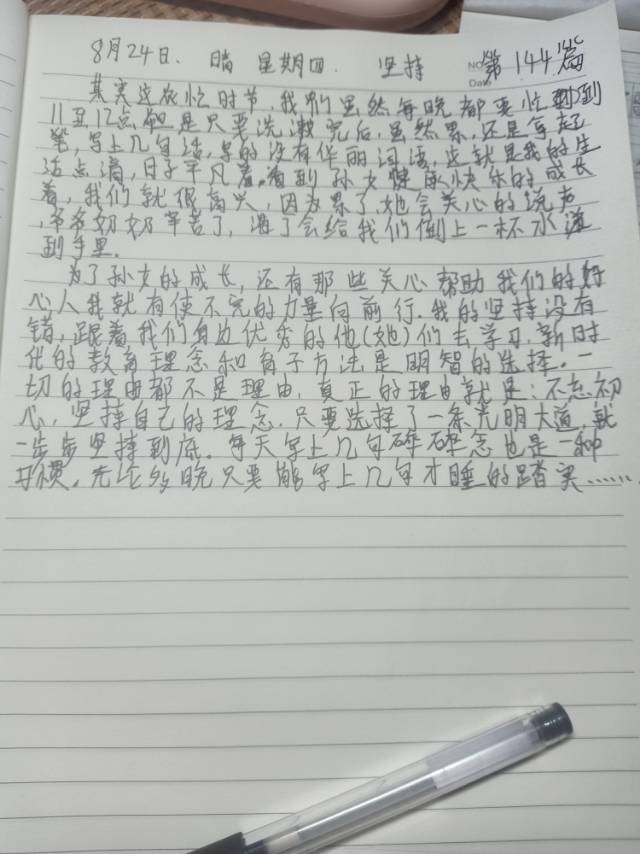 8月24日. 晴 星期四. 坚持 NO. 第144篇
Date
其实这农忙时节,我们虽然每晚都要忙到
11点12点但是只要洗漱完后,虽然累,还是拿起
笔,写上几句话,写的没有华丽词语,这就是我的生
活点滴,日子平凡着,看到孙女健康快乐的成长
着,我们就很高兴,因为累了她会关心的说声
,爷爷奶奶辛苦了,渴了会给我们倒上一杯水
到手里.
为了孙女的成长,还有那些关心帮助我们的好
心人我就有使不完的力量向前行.我的坚持没有
错,跟着我们身边优秀的他(她)们去学习,新时
代的教育理念和育子方法是明智的选择.一
切的理由都不是理由,真正的理由就是:不忘初
心,坚持自己的理念,只要选择了一条光明大道,就
一步步坚持到底.每天写上几句碎碎念也是一种
习惯,无论多晚只要能写上几句才睡的踏实……